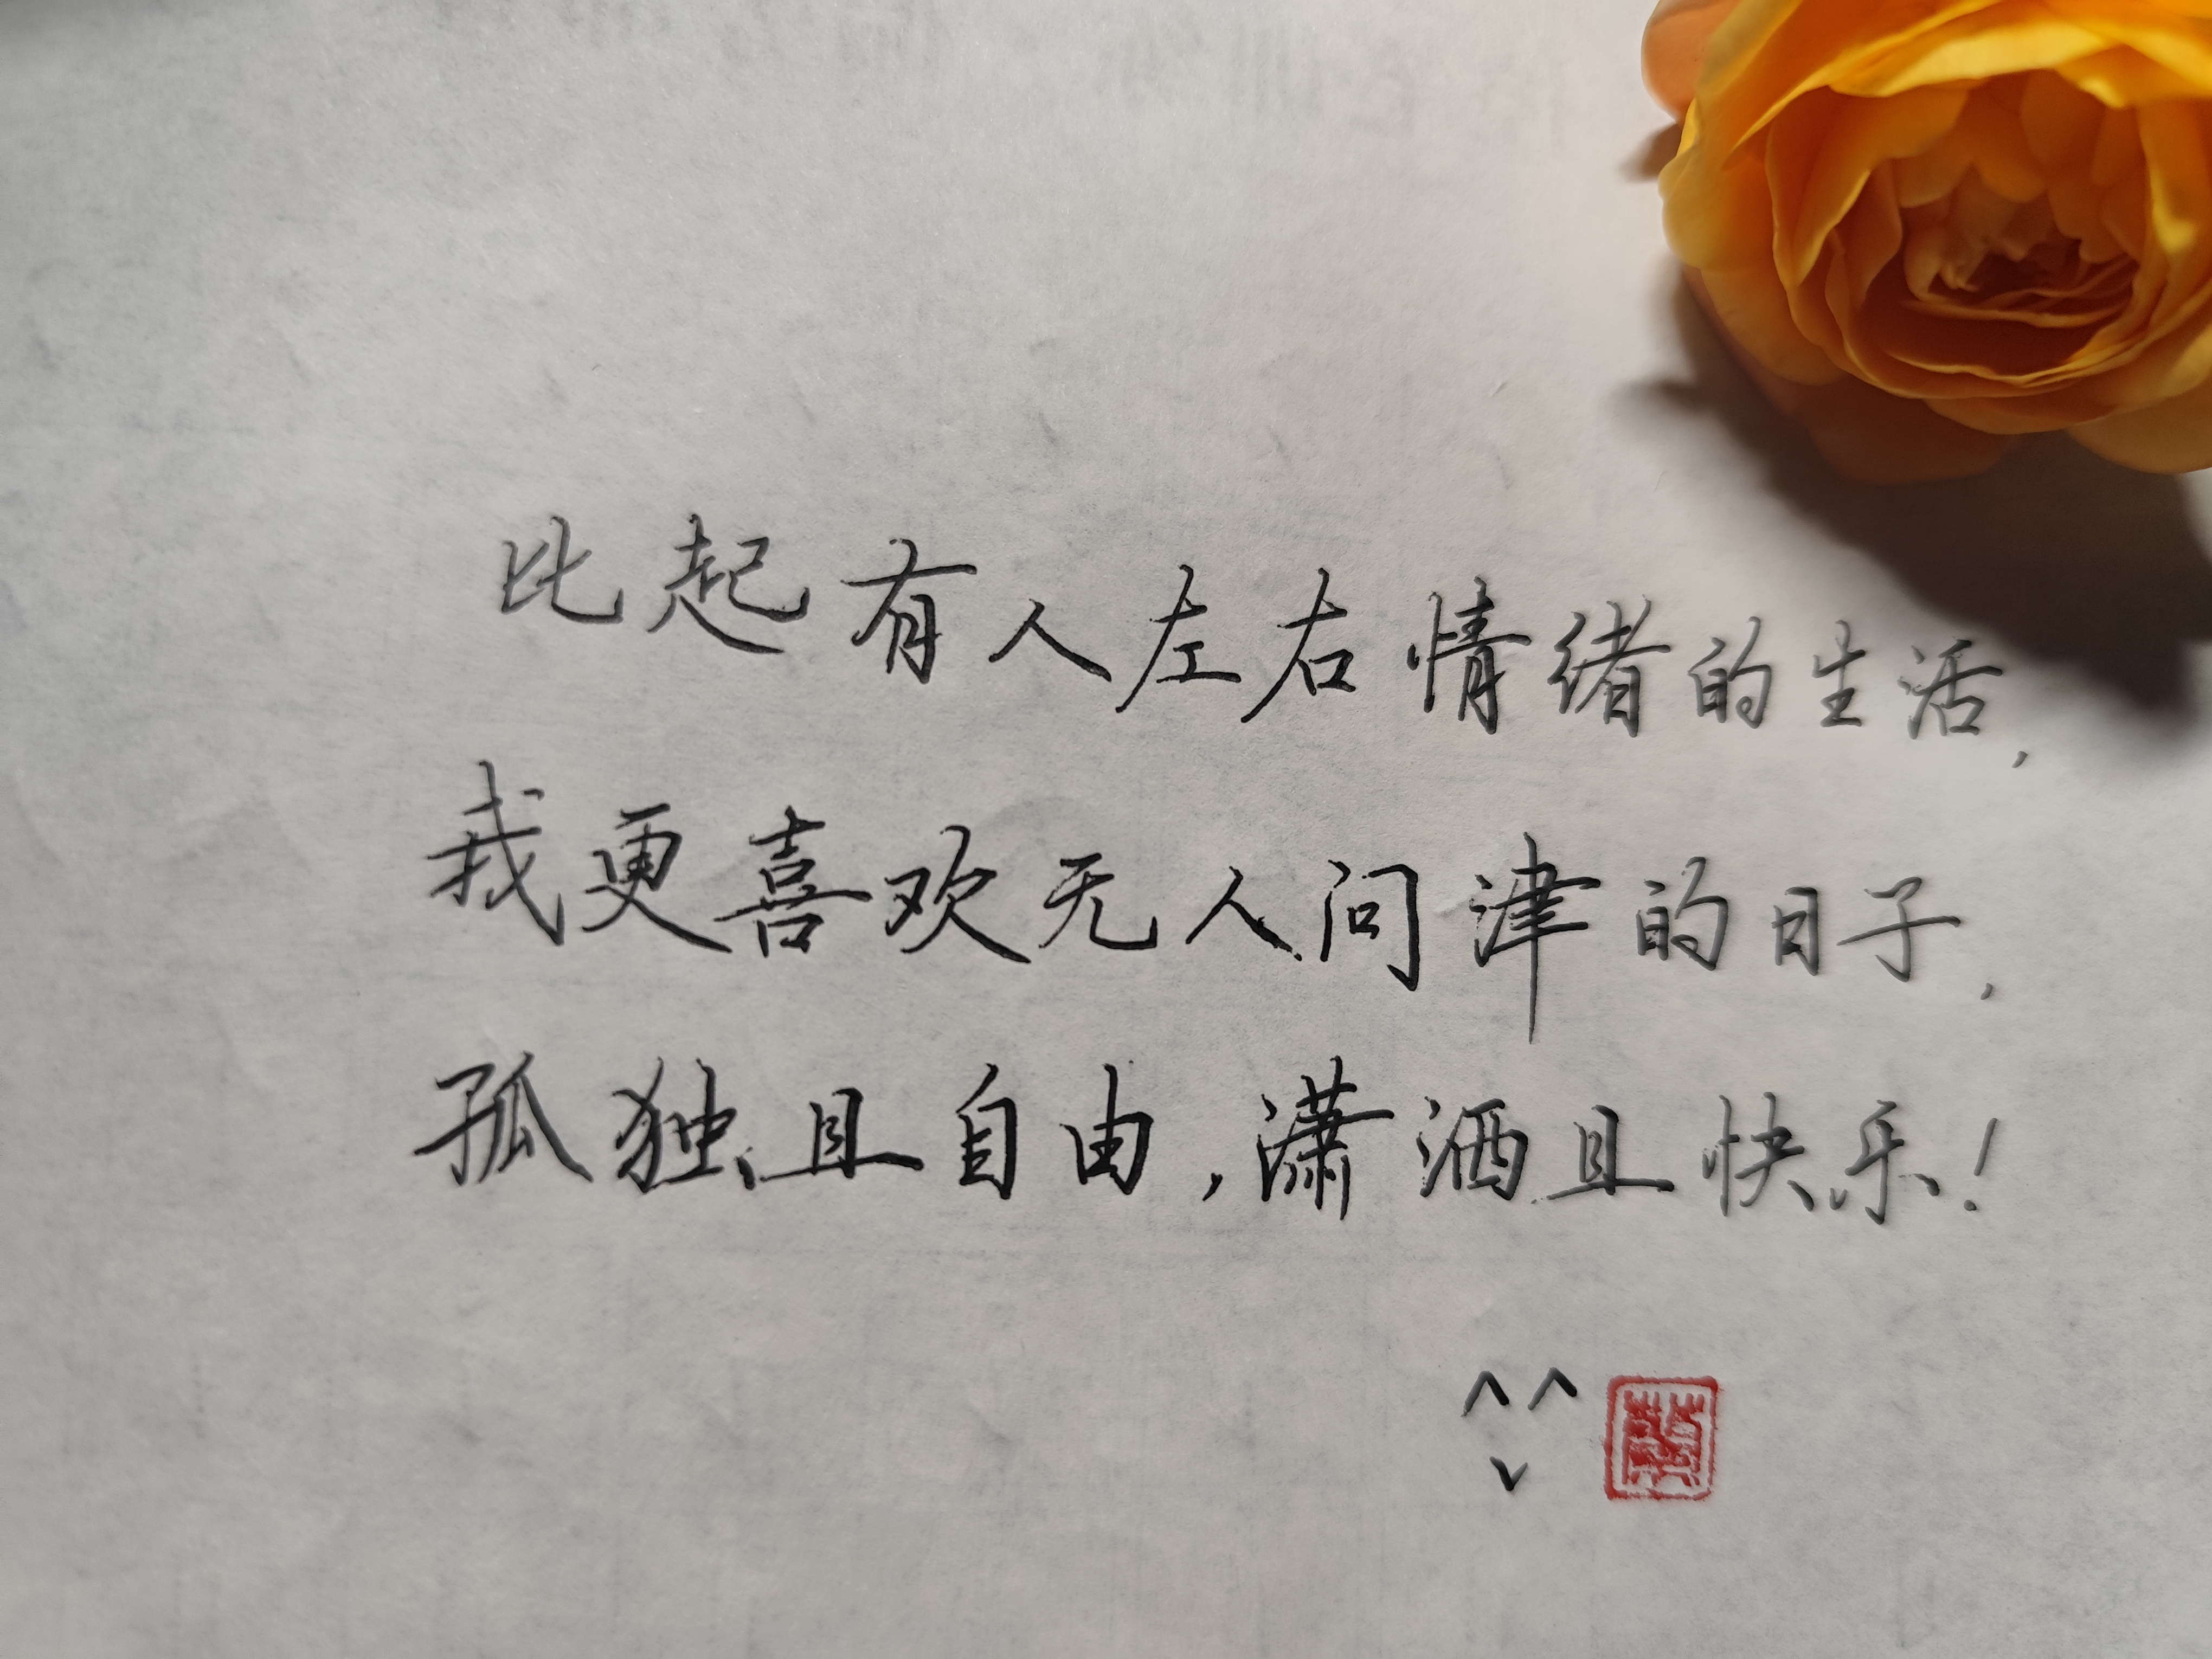 比起有人左右情绪的生活,
我更喜欢无人问津的日子,
孤独且自由,潇洒且快乐!